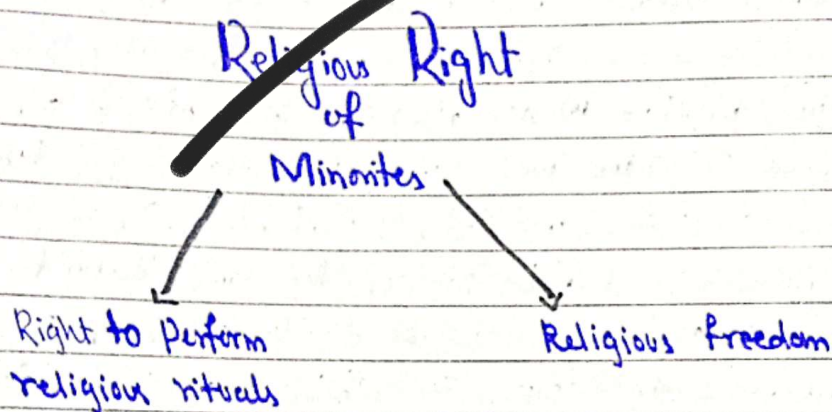 Religious Right
of
Minorites
Right to perform
religious rituals
Religious freedom